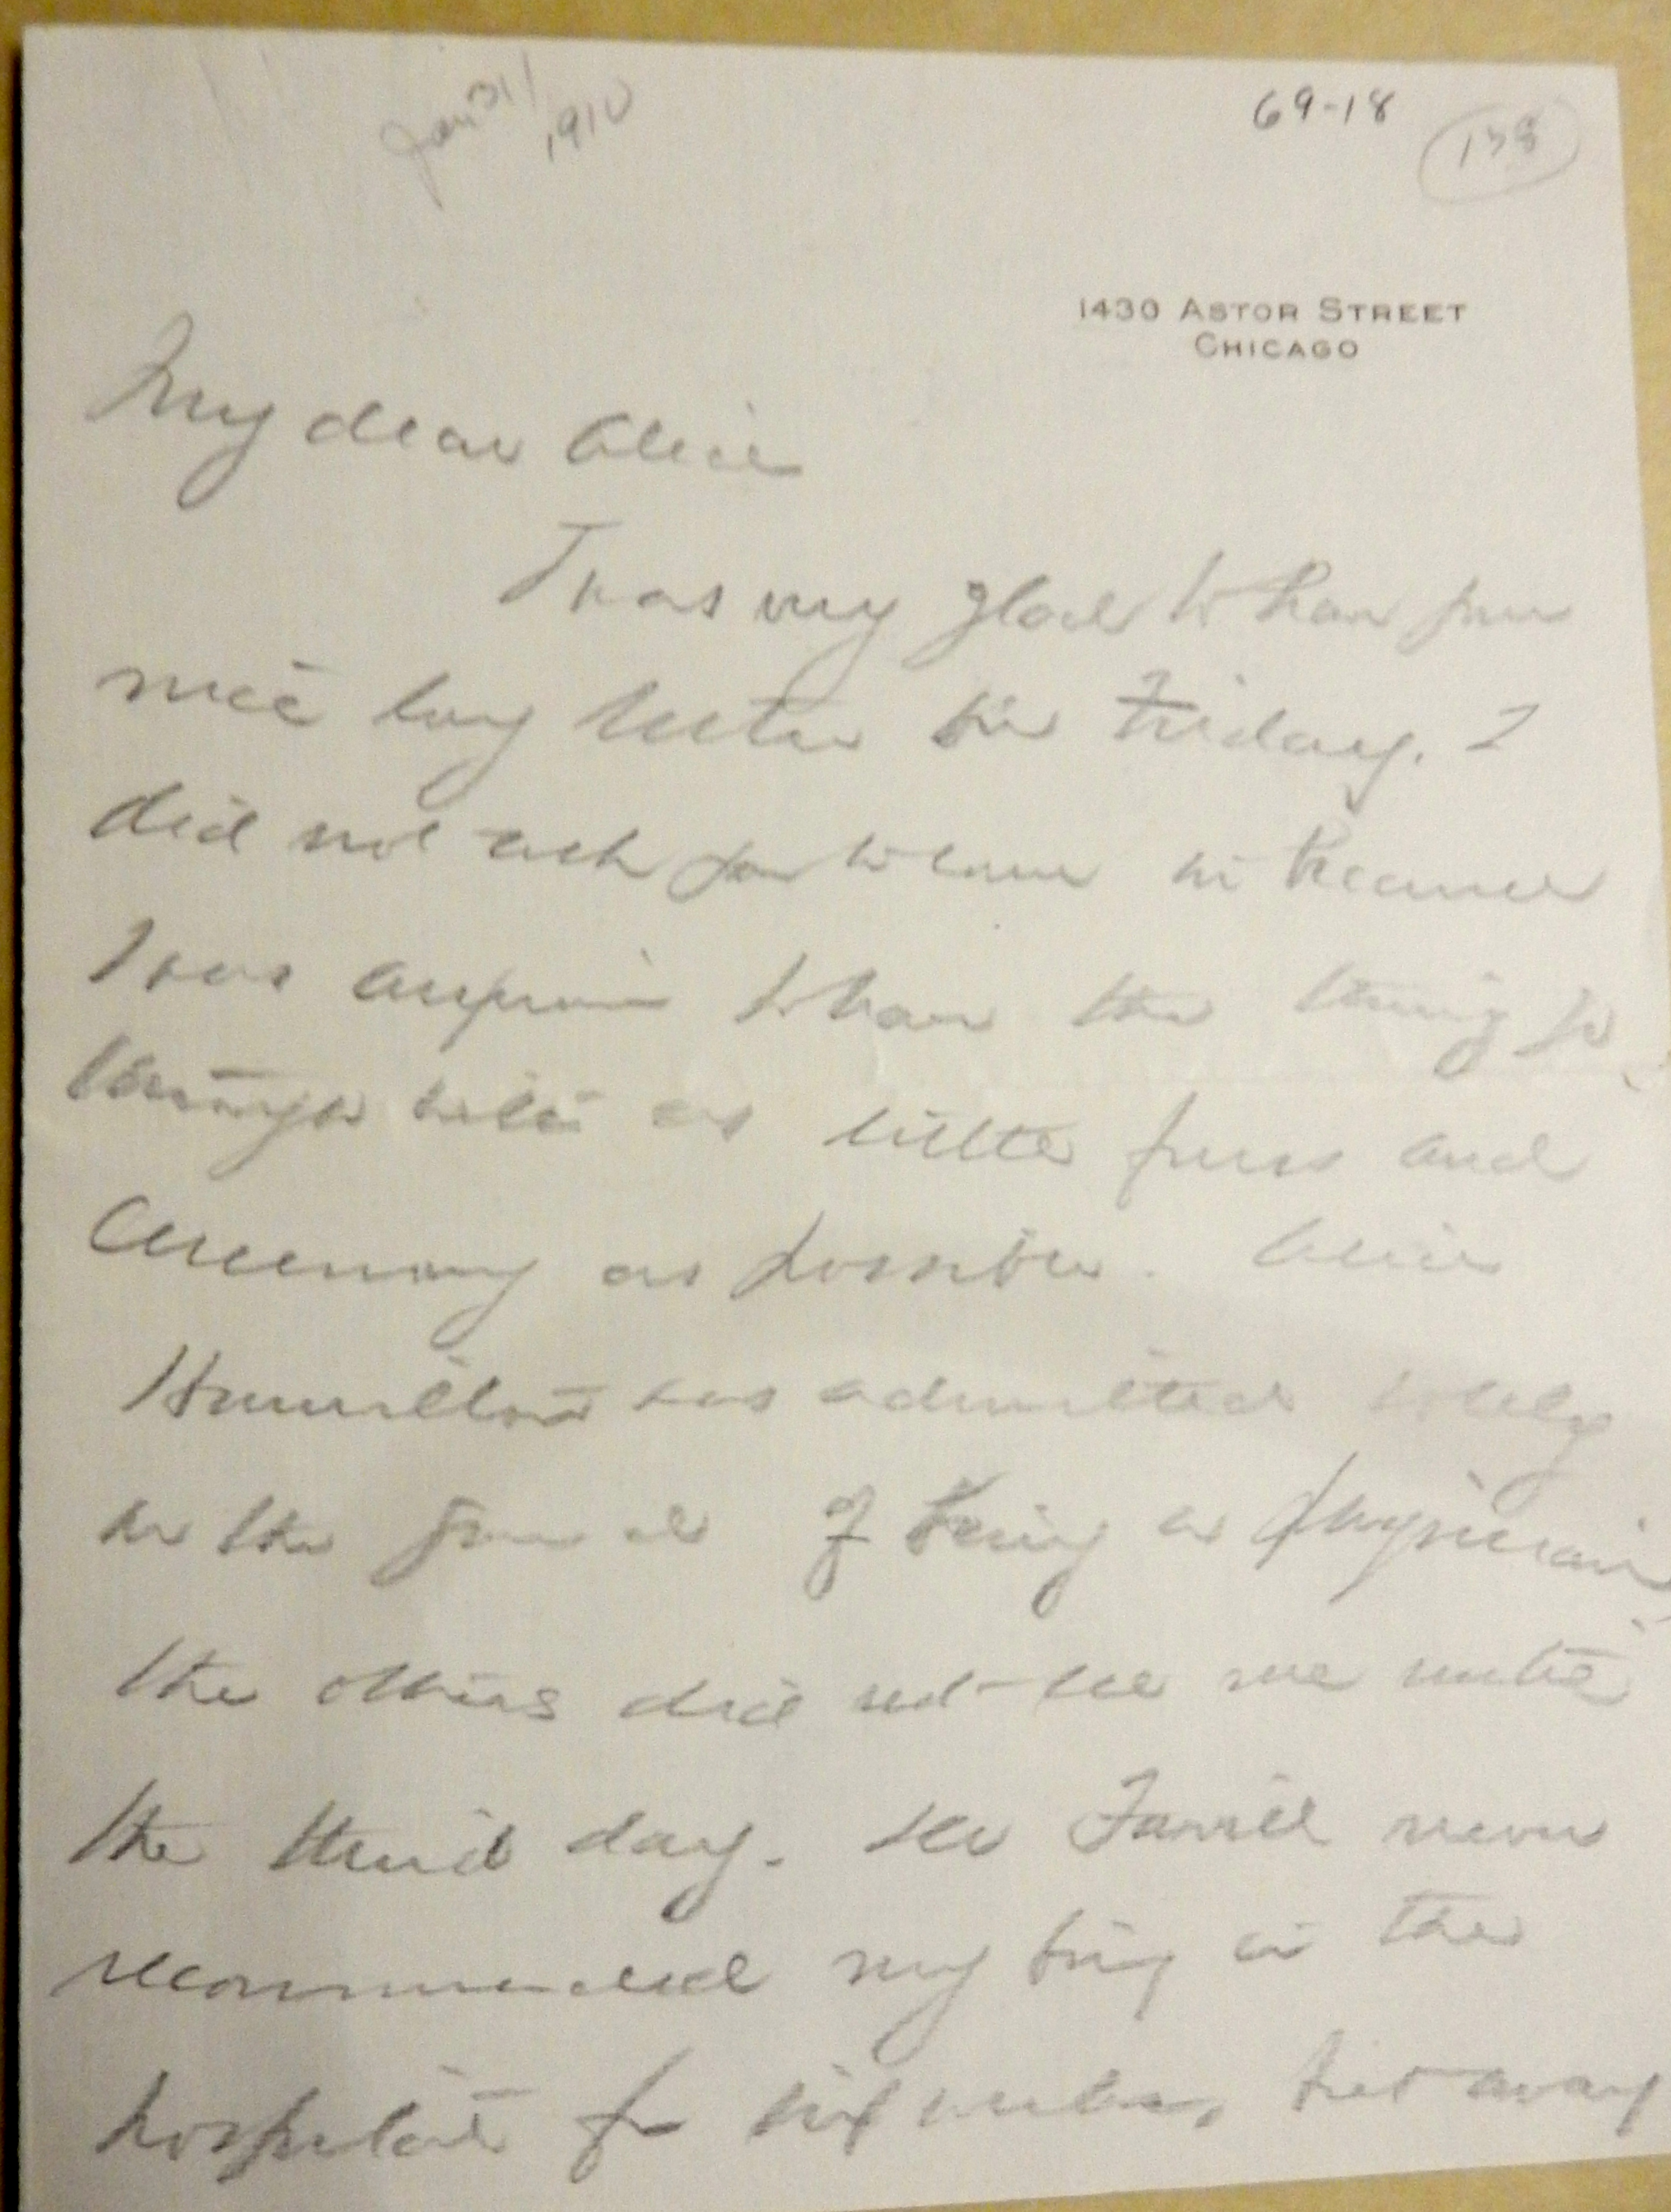 Jan 31/
1910
69-18
138
1430 ASTOR STREET
CHICAGO
My dear Alice
I was very glad to have your
nice long letter on Friday. I
did not ask you to come in because
I was anxious to have the thing go
through with as little fuss and
ceremony as possible. Alice
Hamilton was admitted solely
on the ground of being a physician
the others did not see me until
the third day. He never
recommended my being in the
hospital for six weeks, but away